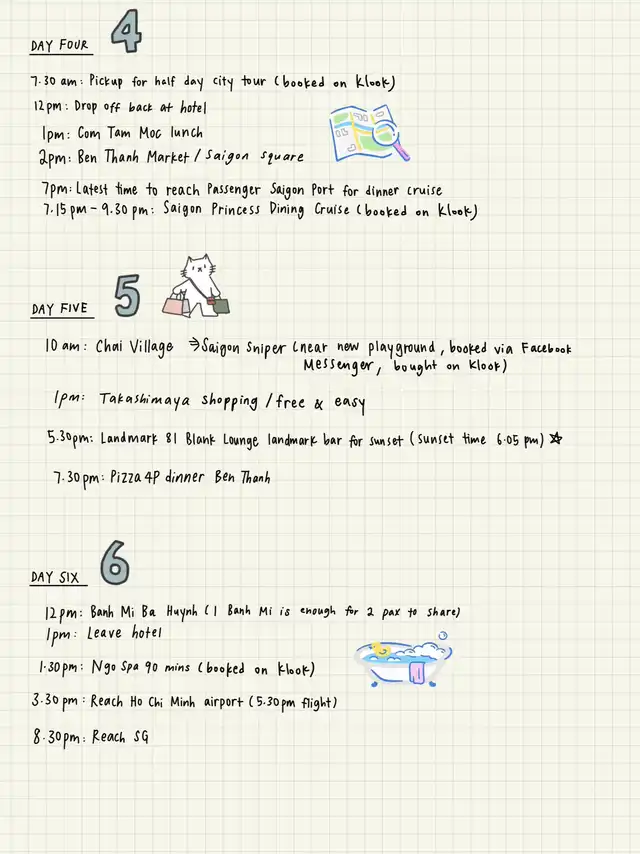 DAY FOUR 4
7.30 am: Pickup for half day city tour (booked on Klook)
12pm: Drop off back at hotel
1pm: Com Tam Moc lunch
2pm: Ben Thanh Market / Saigon square
7pm: Latest time to reach Passenger Saigon Port for dinner cruise
7.15 pm - 9.30 pm: Saigon Princess Dining Cruise (booked on Klook)
DAY FIVE 5
10 am: Chai Village → Saigon Sniper (near new playground, booked via Facebook
Messenger, bought on Klook)
1pm: Takashimaya shopping / free & easy
5.30pm: Landmark 81 Blank Lounge landmark bar for sunset (sunset time 6.05 pm) ☆
7.30 pm: Pizza 4P dinner Ben Thanh
DAY SIX 6
12pm: Banh Mi Ba Huynh (1 Banh Mi is enough for 2 pax to share)
1pm: Leave hotel
1.30pm: Ngo Spa 90 mins (booked on Klook)
3.30 pm: Reach Ho Chi Minh airport (5.30pm flight)
8.30pm: Reach SG